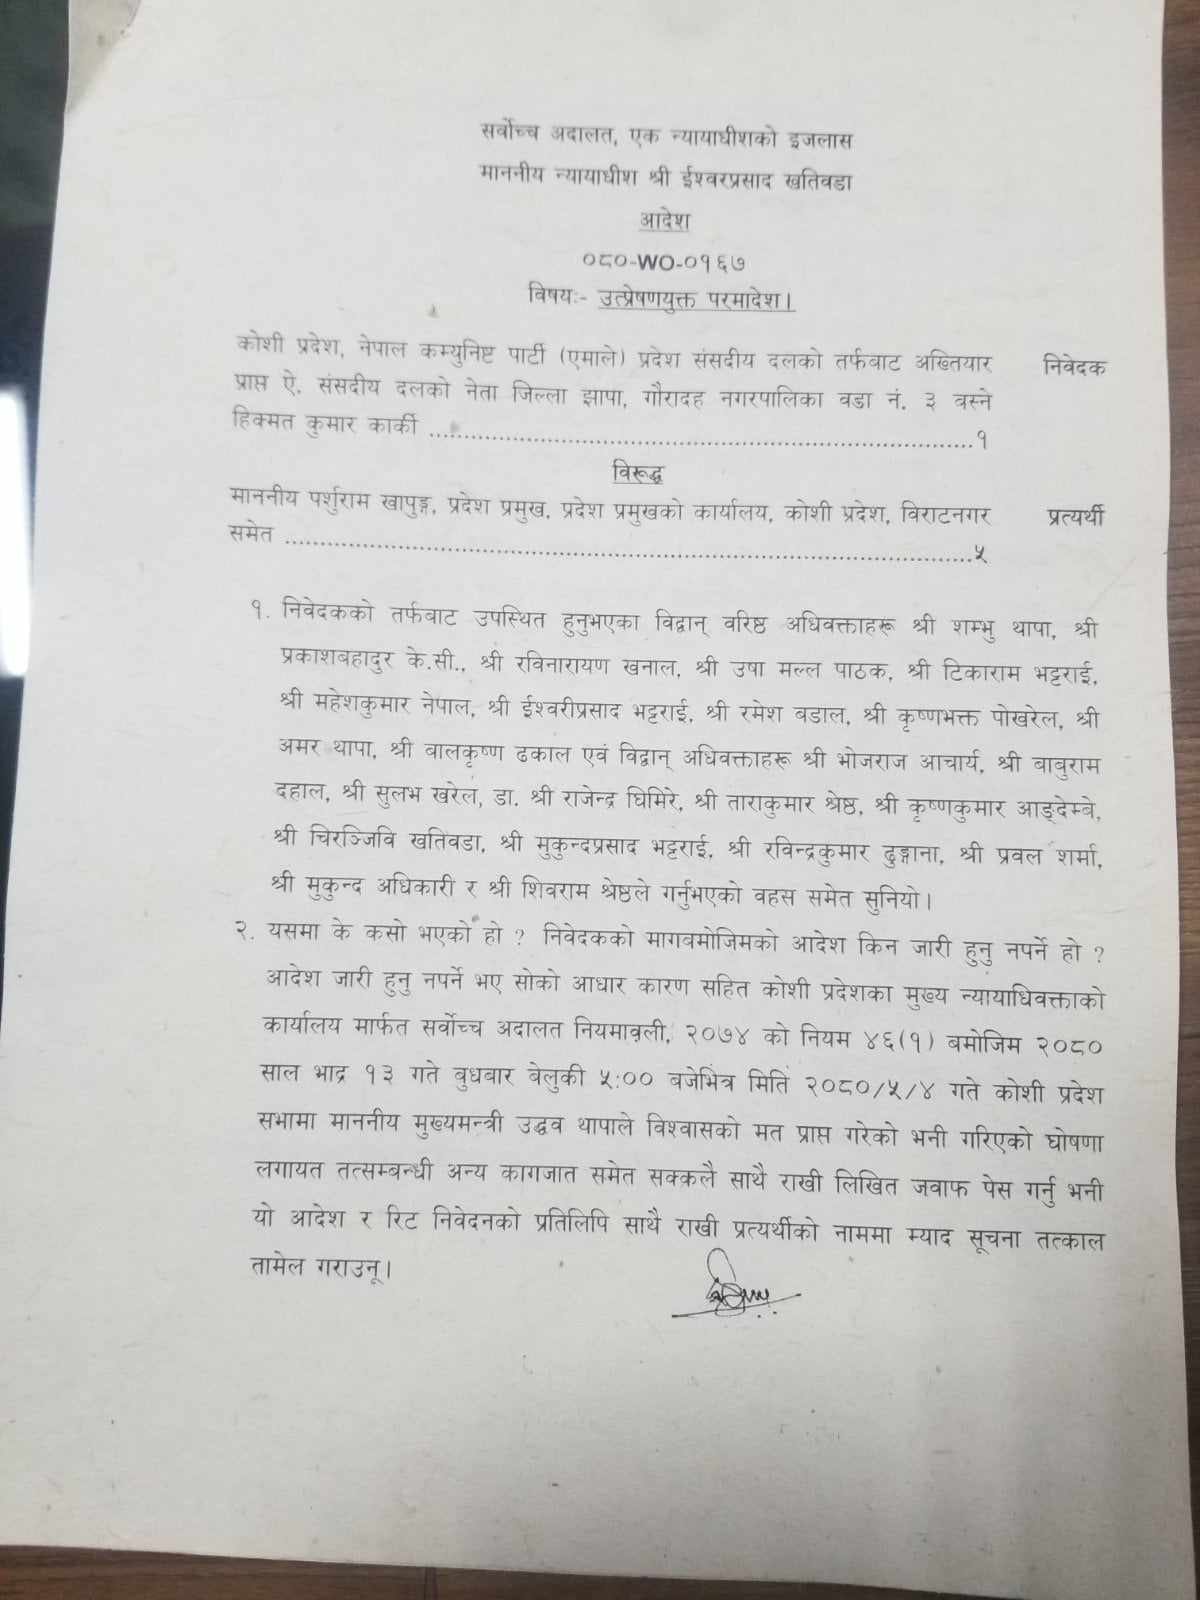 सर्वोच्च अदालत, एक न्यायाधीशको इजलास
माननीय न्यायाधीश श्री ईश्वरप्रसाद खतिवडा
आदेश
०८०-WO-०१६७
विषय:- उत्प्रेषणयुक्त परमादेश।
कोशी प्रदेश, नेपाल कम्युनिष्ट पार्टी (एमाले) प्रदेश संसदीय दलको तर्फबाट अख्तियार निवेदक
प्राप्त ऐ. संसदीय दलको नेता जिल्ला झापा, गौरादह नगरपालिका वडा नं. ३ वस्ने
हिक्मत कुमार कार्की ....................................................................................१
विरूद्ध
माननीय पर्शुराम खापुङ्ग, प्रदेश प्रमुख, प्रदेश प्रमुखको कार्यालय, कोशी प्रदेश, विराटनगर प्रत्यर्थी
समेत ....................................................................................................५
१. निवेदकको तर्फबाट उपस्थित हुनुभएका विद्वान् वरिष्ठ अधिवक्ताहरू श्री शम्भु थापा, श्री
प्रकाशबहादुर के.सी., श्री रविनारायण खनाल, श्री उषा मल्ल पाठक, श्री टिकाराम भट्टराई,
श्री महेशकुमार नेपाल, श्री ईश्वरीप्रसाद भट्टराई, श्री रमेश बडाल, श्री कृष्णभक्त पोखरेल, श्री
अमर थापा, श्री बालकृष्ण ढकाल एवं विद्वान् अधिवक्ताहरू श्री भोजराज आचार्य, श्री बाबुराम
दहाल, श्री सुलभ खरेल, डा. श्री राजेन्द्र घिमिरे, श्री ताराकुमार श्रेष्ठ, श्री कृष्णकुमार आङ्देम्बे,
श्री चिरञ्जिवि खतिवडा, श्री मुकुन्दप्रसाद भट्टराई, श्री रविन्द्रकुमार ढुङ्गाना, श्री प्रवल शर्मा,
श्री मुकुन्द अधिकारी र श्री शिवराम श्रेष्ठले गर्नुभएको वहस समेत सुनियो।
२. यसमा के कसो भएको हो ? निवेदकको मागबमोजिमको आदेश किन जारी हुनु नपर्ने हो ?
आदेश जारी हुनु नपर्ने भए सोको आधार कारण सहित कोशी प्रदेशका मुख्य न्यायाधिवक्ताको
कार्यालय मार्फत सर्वोच्च अदालत नियमावली, २०७४ को नियम ४६(१) बमोजिम २०८०
साल भाद्र १३ गते बुधबार बेलुकी ५:०० बजेभित्र मिति २०८०/५/४ गते कोशी प्रदेश
सभामा माननीय मुख्यमन्त्री उद्धव थापाले विश्वासको मत प्राप्त गरेको भनी गरिएको घोषणा
लगायत तत्सम्बन्धी अन्य कागजात समेत सक्कलै साथै राखी लिखित जवाफ पेस गर्नु भनी
यो आदेश र रिट निवेदनको प्रतिलिपि साथै राखी प्रत्यर्थीको नाममा म्याद सूचना तत्काल
तामेल गराउनू।